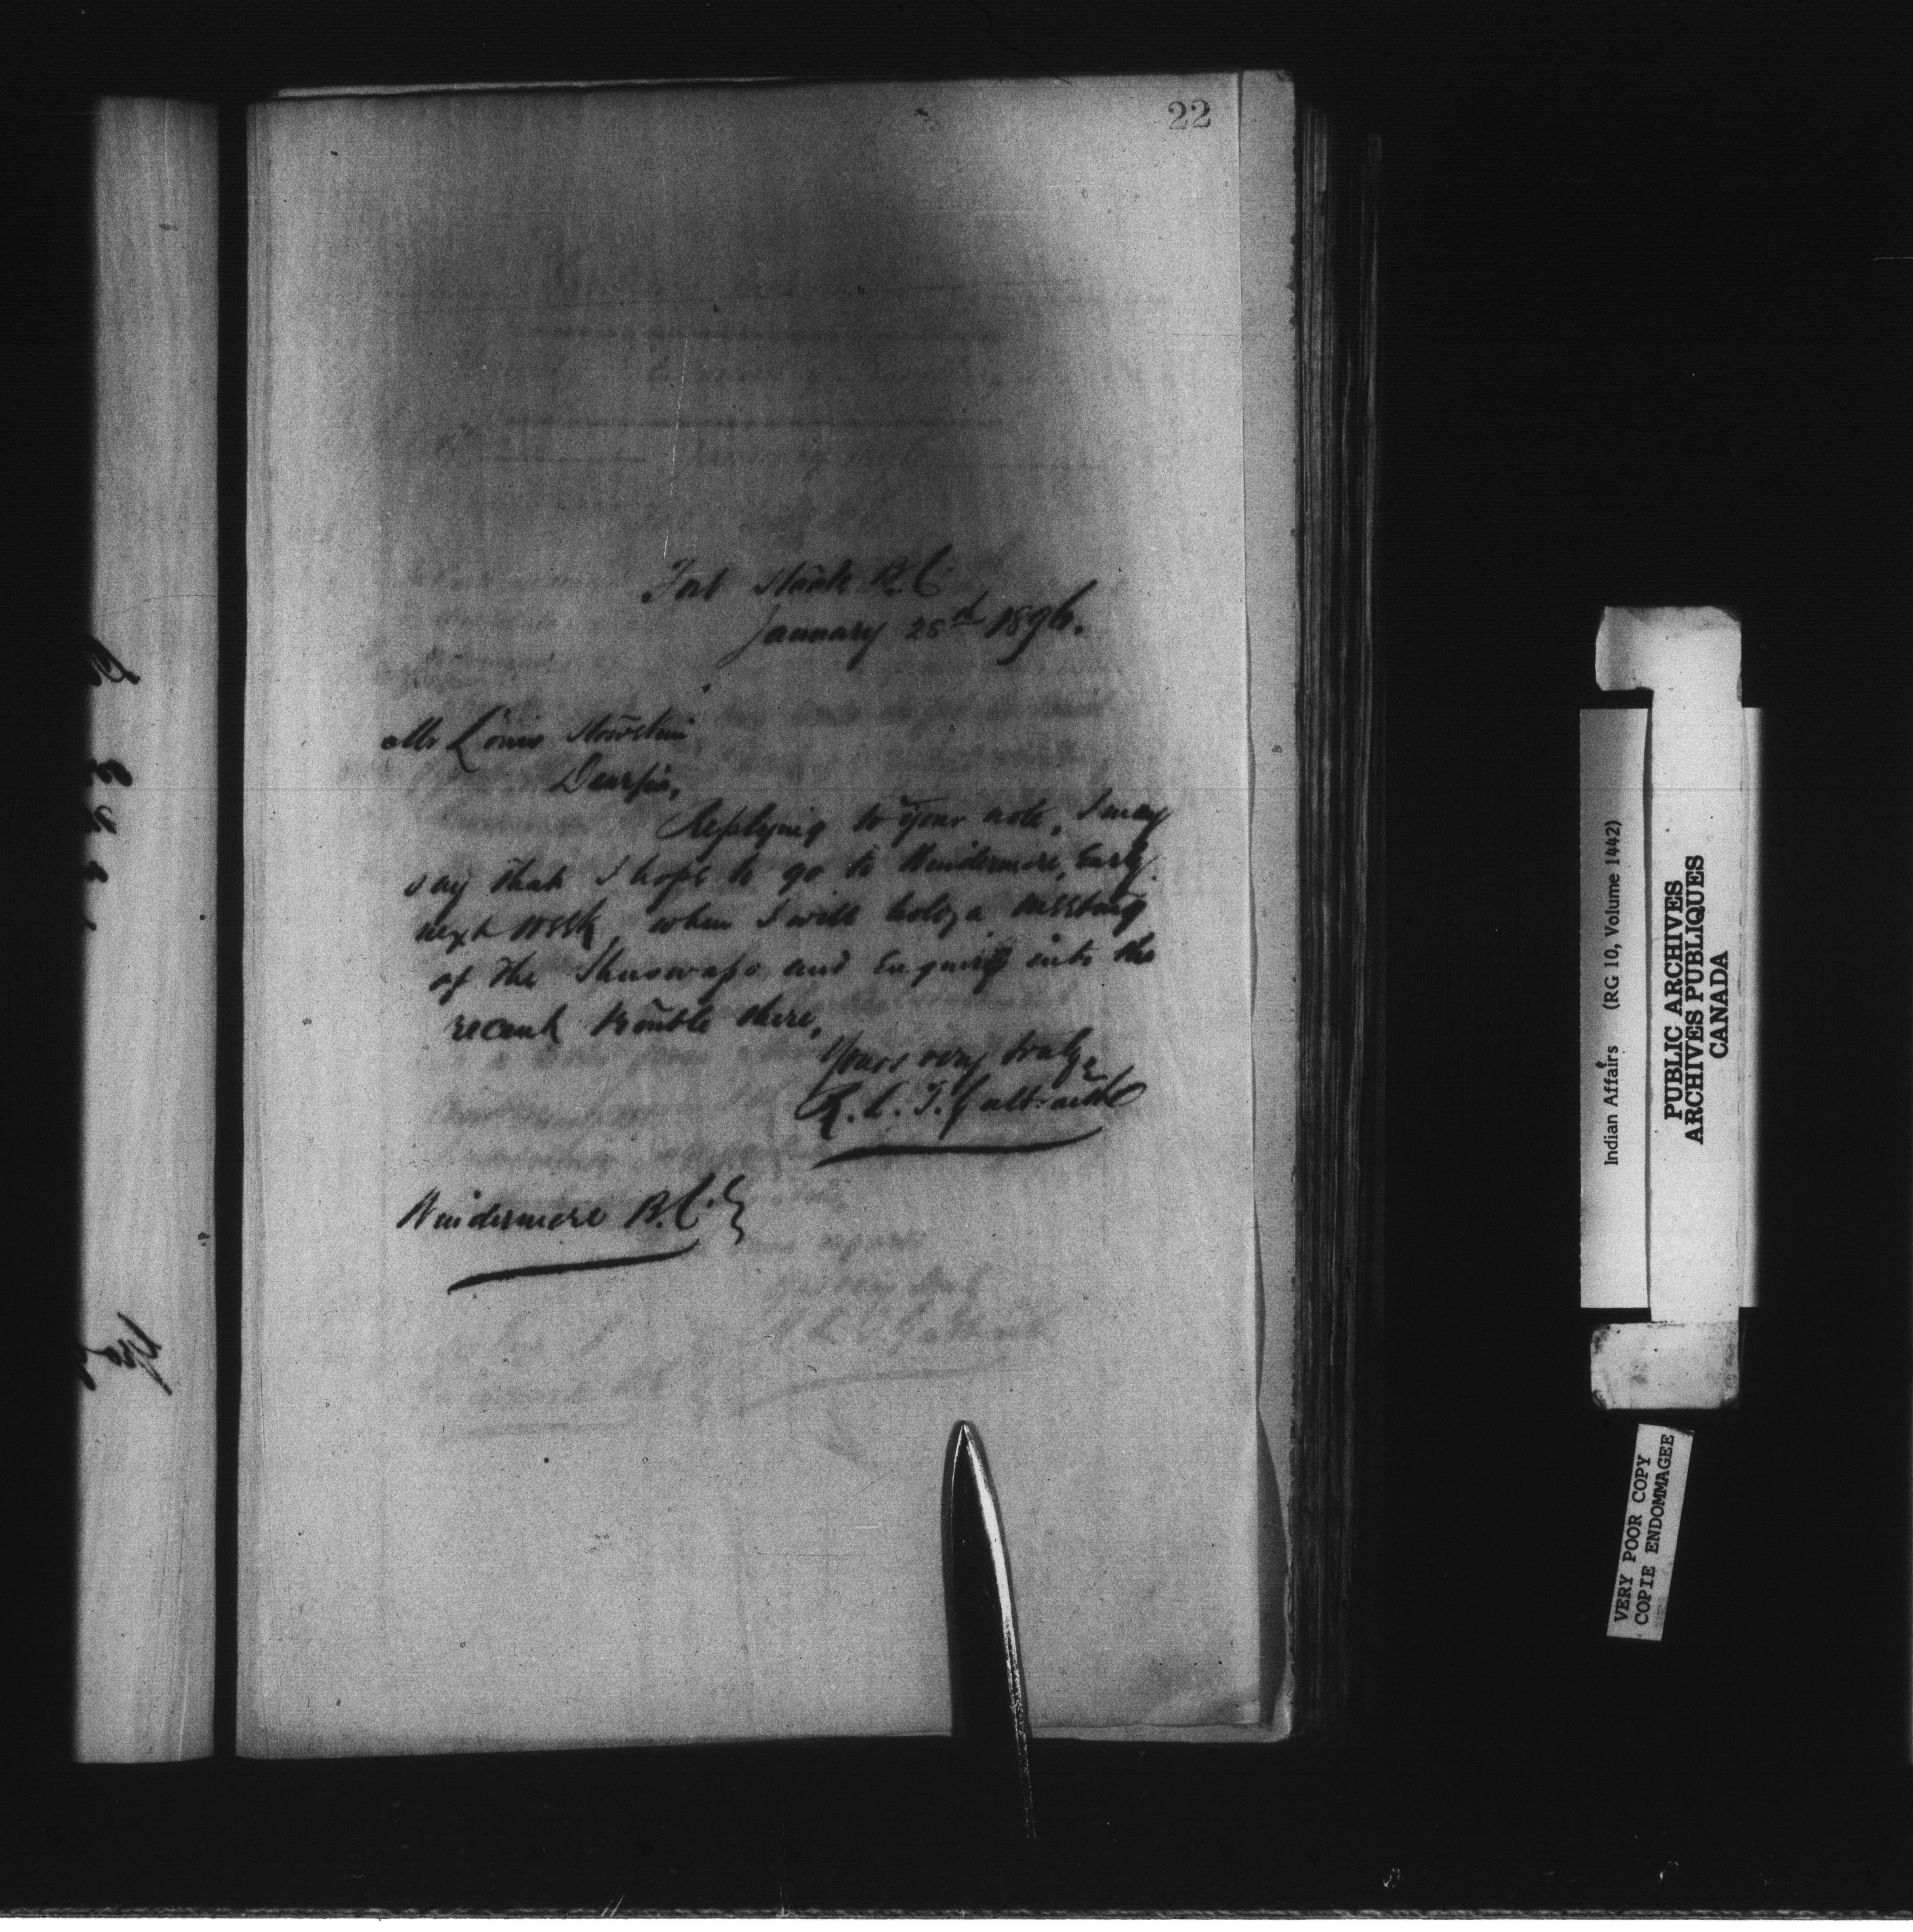 22
Fort Steele B.C.
January 28th 1896.
Mr Louis
Dear Sir,
Replying to your note, I may
say that I hope to go to Windermere, Early
next week, when I will hold a meeting
of the Shuswaps and Enquire into the
recent trouble there,
Yours very truly
R. L. T. Galbraith
Windermere B.C.
Indian Affairs (RG 10, Volume 1442)
PUBLIC ARCHIVES
ARCHIVES PUBLIQUES
CANADA
VERY POOR COPY
COPIE ENDOMMAGEE